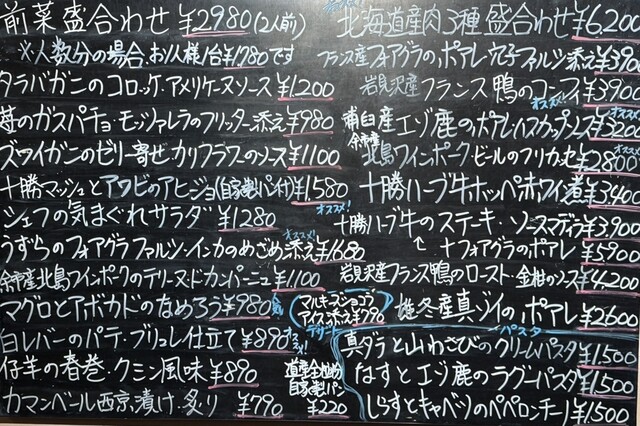 前菜盛合わせ ¥2980(2人前)
※人数分の場合、お1人様1台¥1,780です
タラバガニのコロッケ・アメリケーヌソース ¥1,200
苺のガスパチョ・モッツァレラのフリッター添え ¥980
ズワイガニのゼリー寄せ・カリフラワーのソース ¥1100
十勝マッシュとアワビのアヒージョ(自家製パン付) ¥1580
シェフの気まぐれサラダ ¥1280
オススメ!
うずらのフォアグラファルシ・インカのめざめ添え ¥1680
余市産北島ワインポークのテリーヌ・ドカンパーニュ ¥1100
マグロとアボカドのなめろう ¥980
白レバーのパテ・ブリュレ仕立て ¥890
仔羊の春巻・クミン風味 ¥890
カマンベール西京漬け・炙り ¥790
道産全粒粉
自家製パン
¥220
マルキーズショコラ
アイス添え ¥790
デザート
北海道産肉3種盛合わせ ¥6,200
フランス産フォアグラのポアレ 穴子フィルツ添え ¥3,90
岩見沢産フランス鴨のコンフィ ¥3,900
オススメ!
浦臼産エゾ鹿のポアレ ハスカップソース ¥3200
オススメ!
余市産
北島ワインポーク・ビールのフリカッセ ¥2800
十勝ハーブ牛ホッペ赤ワイン煮 ¥3,400
十勝ハーブ牛のステーキ・ソースマディラ ¥3,900
+フォアグラのポアレ ¥5900
岩見沢産フランス鴨のロースト・金柑のソース ¥4,200
雄冬産真ゾイのポアレ ¥2600
パスタ
真ダラと山わさびのクリームパスタ ¥1,500
なすとエゾ鹿のラグーパスタ ¥1,500
しらすとキャベツのペペロンチーノ ¥1,500